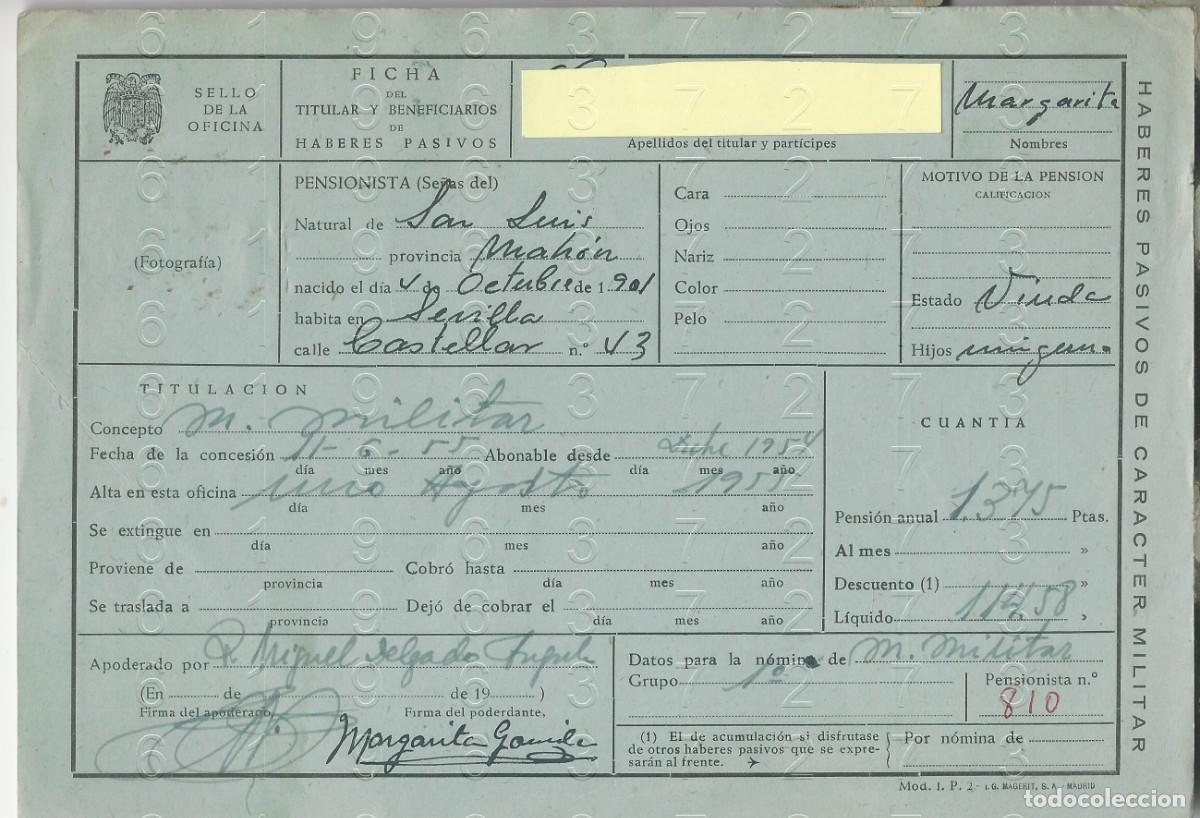 SELLO
DE LA
OFICINA
FICHA
DEL
TITULAR Y BENEFICIARIOS
DE
HABERES PASIVOS
Apellidos del titular y partícipes
Margarita
Nombres
HABERES PASIVOS DE CARACTER MILITAR
(Fotografía)
PENSIONISTA (Señas del)
Natural de San Luis
provincia Mahón
nacido el día 4 de Octubre de 1901
habita en Sevilla
calle Castellar n.º 43
Cara
Ojos
Nariz
Color
Pelo
MOTIVO DE LA PENSION
CALIFICACION
Estado Viuda
Hijos ninguno
TITULACION
Concepto M. Militar
Fecha de la concesión 11-6-55 Abonable desde 1954
día mes año día mes año
Alta en esta oficina uno Agosto 1955
día mes año
Se extingue en
día mes año
Proviene de Cobró hasta
provincia día mes año
Se traslada a Dejó de cobrar el
provincia día mes año
CUANTIA
Pensión anual 1.375 Ptas.
Al mes »
Descuento (1) »
Líquido 114,58 »
Apoderado por Miguel Delgado
(En de de 19 )
Firma del apoderado, Firma del poderdante,
Margarita
Datos para la nómina de M. Militar
Grupo 1º Pensionista n.º
810
(1) El de acumulación si disfrutase
de otros haberes pasivos que se expre-
sarán al frente.
Por nómina de
Mod. I. P. 2 - I.G. MAGERIT, S. A - MADRID
todocoleccion